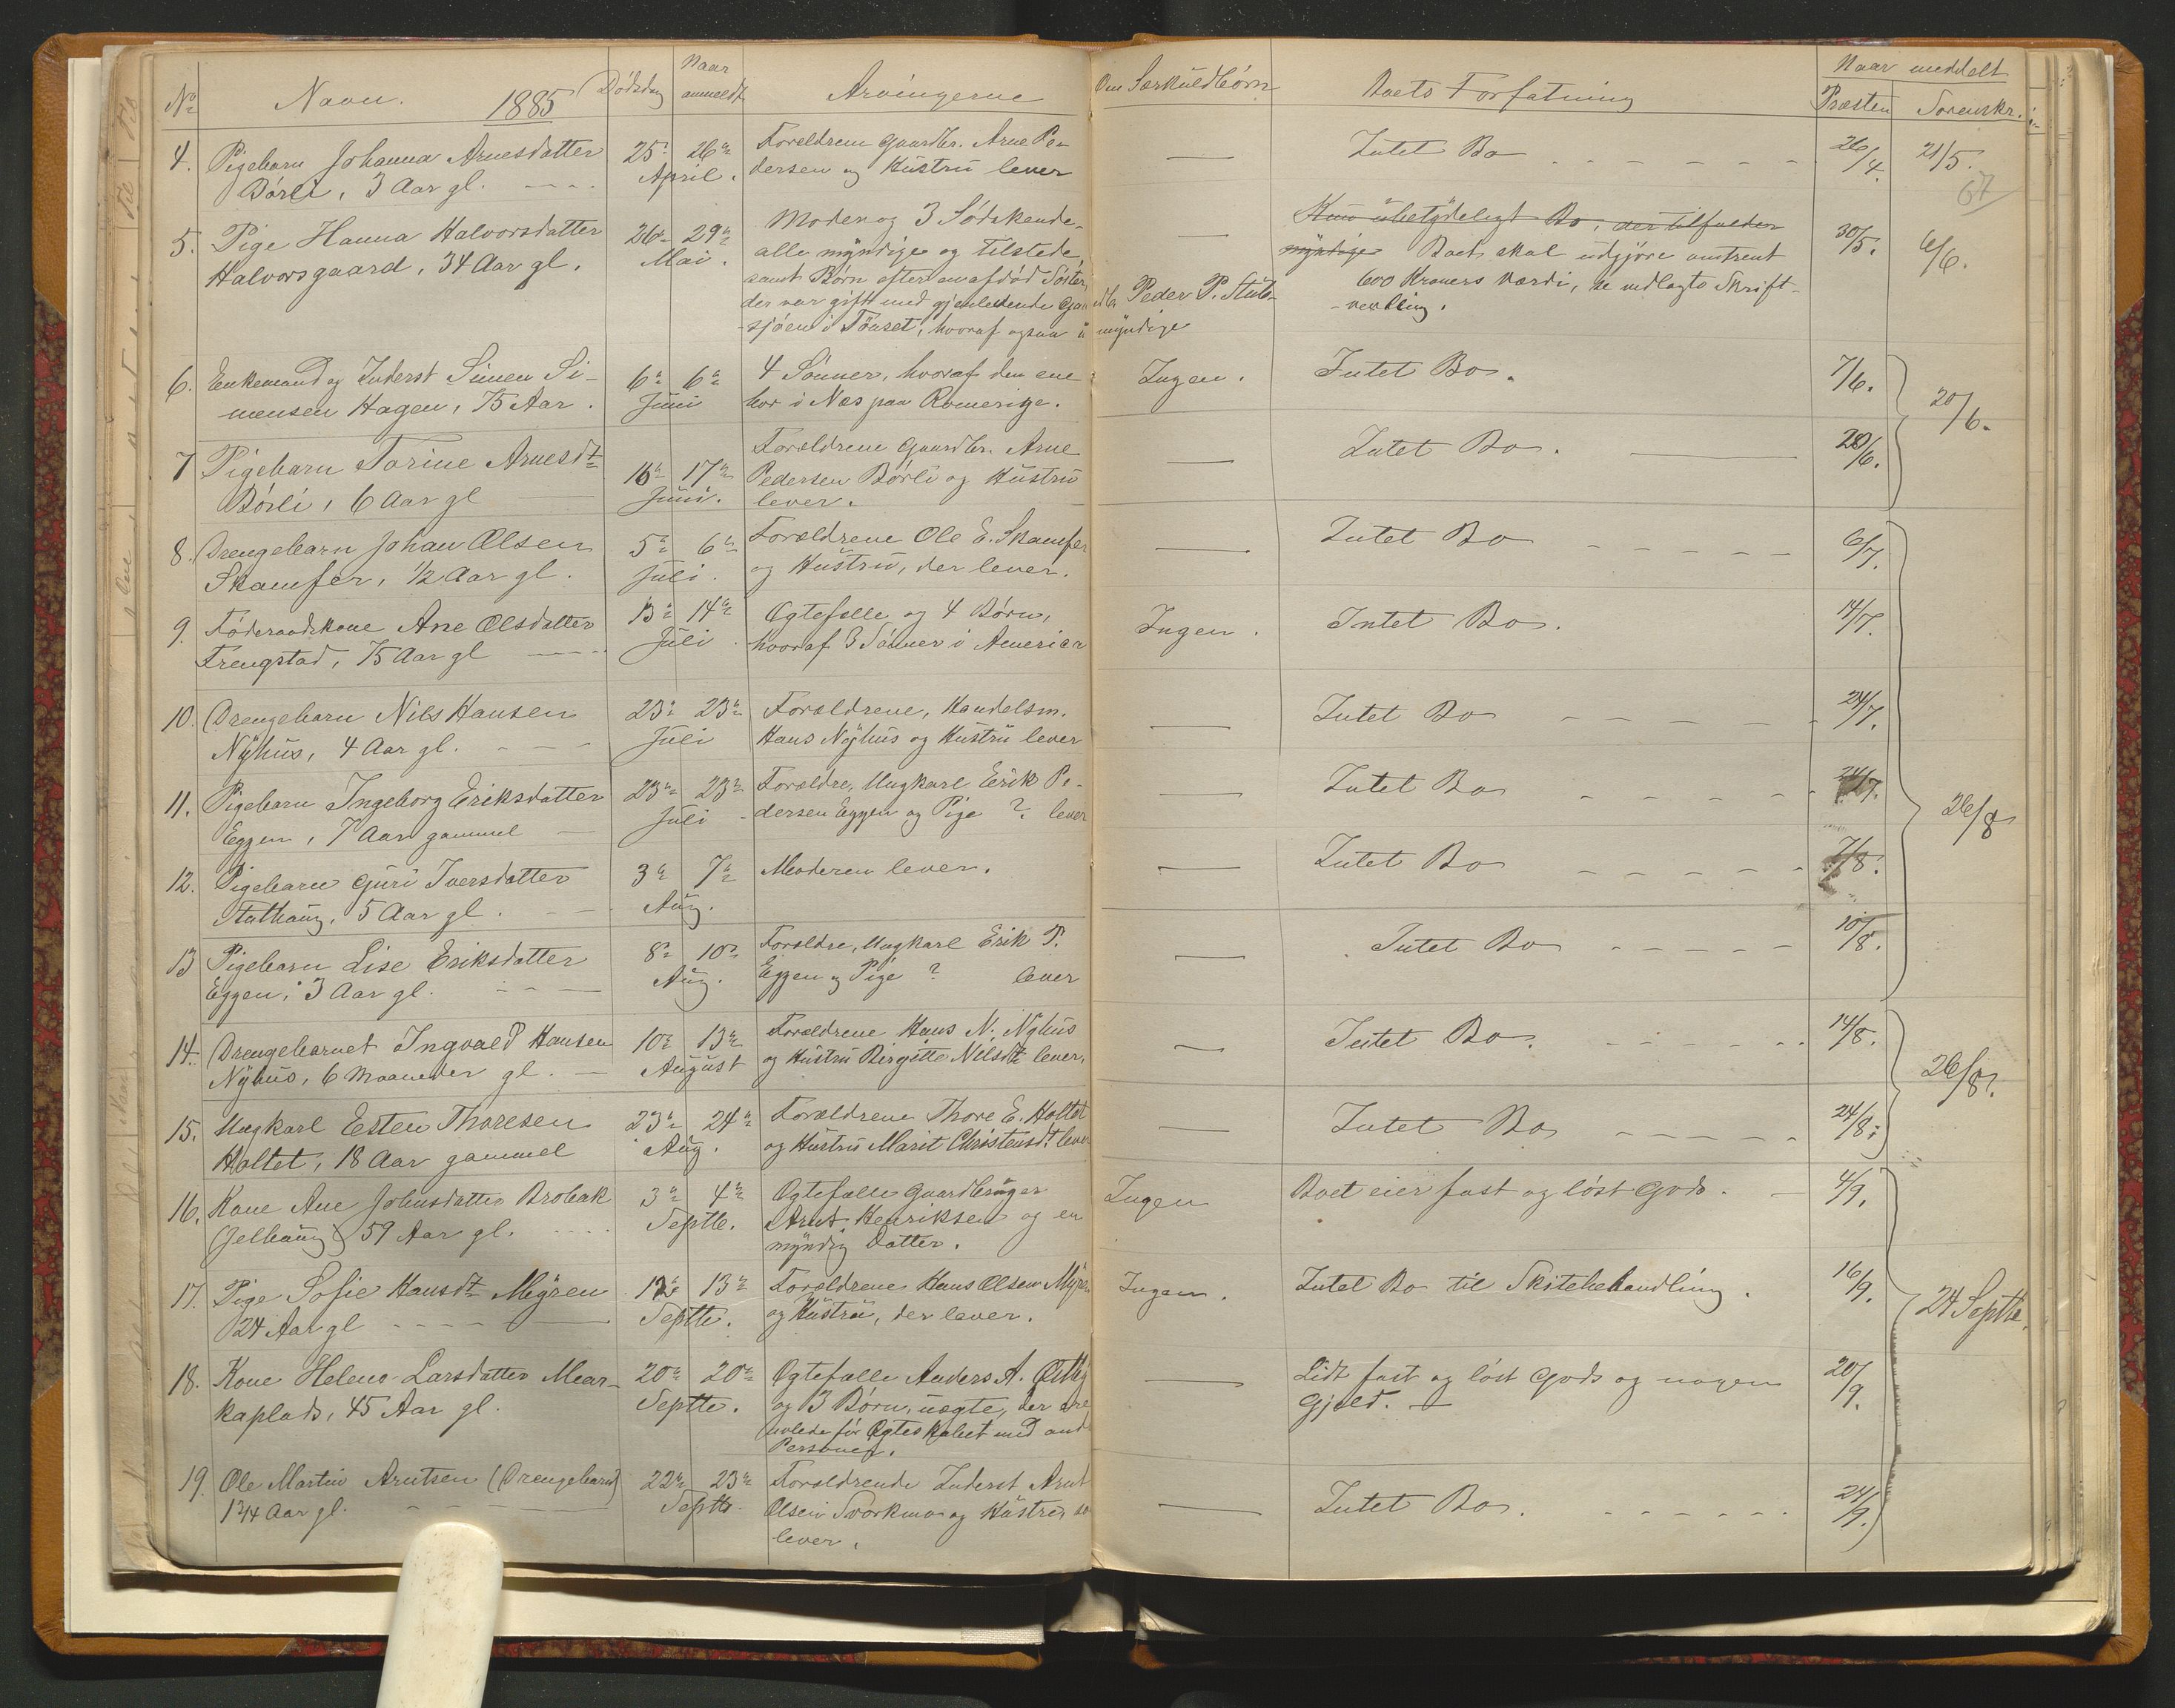 No Navn. 1885 Dødsdag Naar anmeldt Arvingerne Om Særkuldbørn Boets Forfatning Naar meddelt Præsten Sorenskr.
67
4. Pigebarn Johanna Arnesdatter 25de 26de Forældrene Gaardbr. Arne Pe- — Intet Bo 26/4. 21/5.
Børli, 3 Aar gl. April. dersen og Hustru lever
5. Pige Hanna Halvorsdatter 26de 29de Moder og 3 Sødskende — Kun ubetydeligt Bo, der tilfalder 30/5. 6/6.
Halvorsgaard, 34 Aar gl. Mai. alle myndige og tilstede, myndige Boet skal udgjøre omtrent
samt Børn efter en afdød Søster, 600 Kroners Værdi, se vedlagte Skrift-
der var gift med gjenlevende Gaardbr. Peder P. Stub- -vexling.
sjøen i Tønset, hvoraf ogsaa umyndige
6. Enkemand og Inderst Simen Si- 6te 6te 4 Sønner, hvoraf den ene Ingen. Intet Bo. 7/6. 20/6.
mensen Hagen, 75 Aar. Juni bor i Næs paa Romerige.
7 Pigebarn Torine Arnesdt 16de 17de Forældrene Gaardbr. Arne — Intet Bo. 20/6.
Børli, 6 Aar gl Juni. Pedersen Børli og Hustru
lever.
8. Drengebarn Johan Olsen 5te 6te Forældrene Ole E. Skamfer — Intet Bo 6/7.
Skamfer, 1/2 Aar gl. Juli. og Hustru, der lever.
9. Føderaadskone Ane Olsdatter 13de 14de Egtefelle og 4 Børn, Ingen. Intet Bo. 14/7.
Trengstad, 75 Aar gl Juli. hvoraf 3 Sønner i America
10. Drengebarn Nils Hansen 23de 23de Forældrene, Handelsm. — Intet Bo 24/7.
Nyhus, 4 Aar gl. Juli Hans Nyhus og Hustru lever
11. Pigebarn Ingeborg Eriksdatter 23de 23de Forældre, Ungkarl Erik Pe- — Intet Bo 24/7. 26/8
Eggen, 7 Aar gammel Juli dersen Eggen og Pige ? lever
12. Pigebarn Guri Iversdatter 3de 7de Moderen lever. — Intet Bo 7/8.
Stuthaug, 5 Aar gl. Aug.
13 Pigebarn Lise Eriksdatter 8de 10de Forældre, Ungkarl Erik P. — Intet Bo 10/8.
Eggen, 3 Aar gl. Aug. Eggen og Pige ? lever
14. Drengebarnet Ingvald Hansen 10de 13de Forældrene Hans N. Nyhus — Intet Bo. 14/8. 26/8.
Nyhus, 6 Maaneder gl. August og Hustru Birgitte Nilsdt lever,
15. Ungkarl Esten Thoresen 23de 24de Forældrene Thore E. Holtet — Intet Bo 24/8.
Holtet, 18 Aar gammel Aug. og Hustru Marit Christensdt. lever
16. Kone Ane Johnsdatter Brobak 3de 4de Egtefælle Gaardbruger Ingen Boet eier fast og løst Gods. 4/9.
(Jelhaug) 59 Aar gl. Septbr. Arnt Henriksen og en
myndig Datter.
17. Pige Sofie Hansdt Myren 12te 13de Forældrene Hans Olsen Myren Ingen. Intet Bo til Skiftebehandling. 16/9. 24 Septbr.
24 Aar gl Septbr. og Hustru, der lever.
18. Kone Helene Larsdatter Moar- 20de 20de Egtefælle Anders A. Østby — Lidt fast og løst Gods og nogen 20/9.
kaplads, 45 Aar gl. Septbr. og 3 Børn, uægte, der ere Gjeld.
avlede før Egteskabet med and
Personer.
19. Ole Martin Arntsen (Drengebarn) 22de 23de Forældrende Inderst Arnt — Intet Bo. 24/9.
1 3/4 Aar gl. Septbr. Olsen Svorkmo og Hustru so
lever.